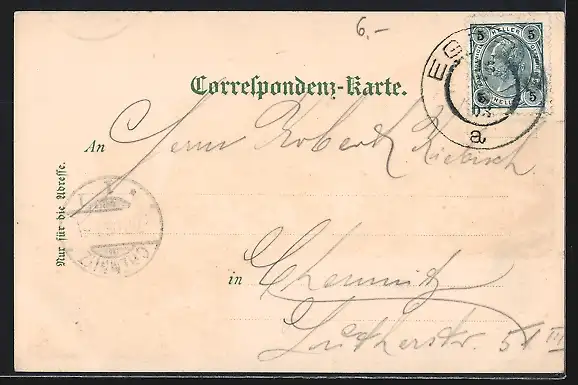 6.-
5 HELLER 5
EG
5 HELLER 5
03
a
Correspondenz-Karte.
An Herrn Robert
Nur für die Adresse.
CHEMNITZ
in Chemnitz
Lutherstr. 51 III